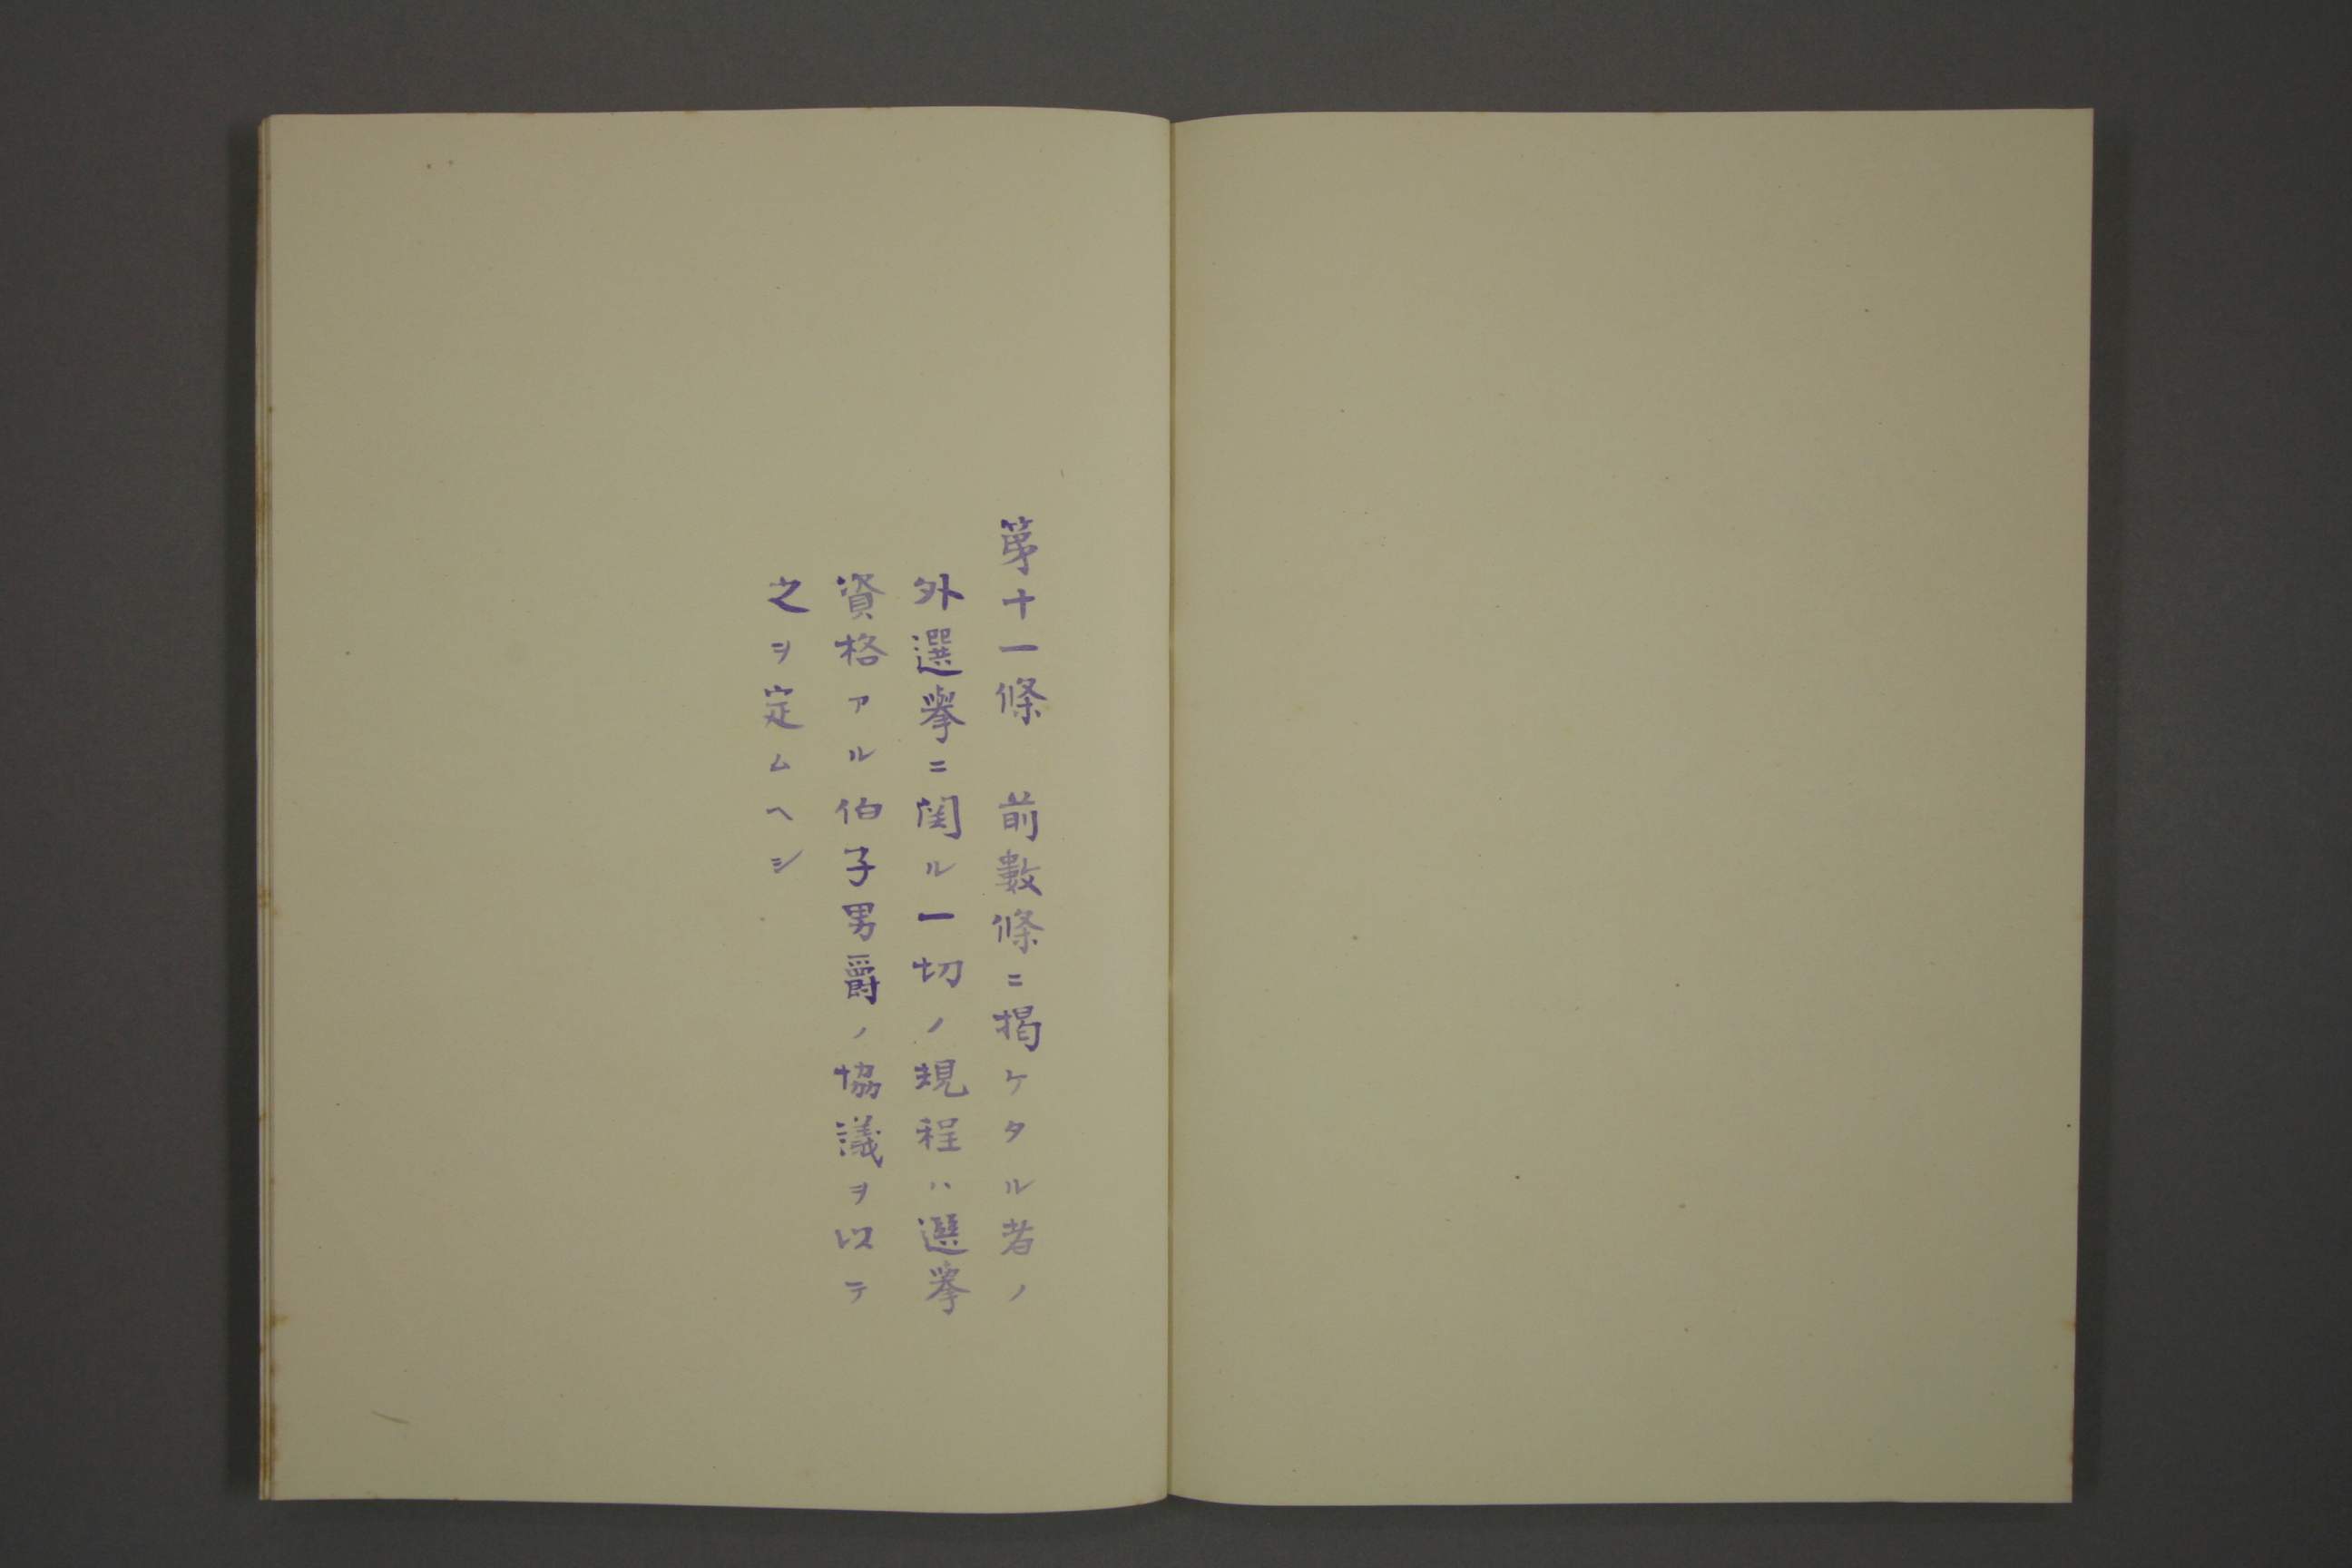 第十一條　前數條ニ掲ケタル者ノ
外選擧ニ関ル一切ノ規程ハ選擧
資格アル伯子男爵ノ協議ヲ以テ
之ヲ定ムヘシ